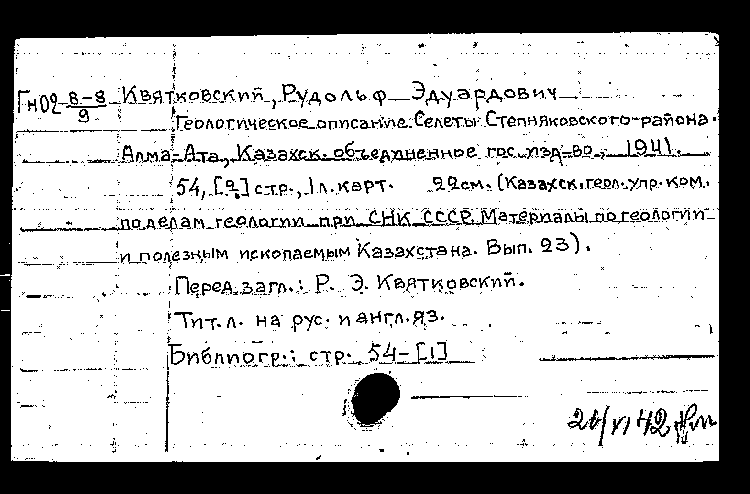 Гн02 8-8/9 Квятковский, Рудольф Эдуардович
Геологическое описание Селеты Степняковского района.
Алма-Ата, Казахск. объединенное гос. изд-во, 1941.
54, [2] стр., 1 л. карт. 22 см. (Казахск. геол. упр. ком.
по делам геологии при СНК СССР. Материалы по геологии
и полезным ископаемым Казахстана. Вып. 23).
Перед загл.: Р. Э. Квятковский.
Тит. л. на рус. и англ. яз.
Библиогр.: стр. 54-[1]